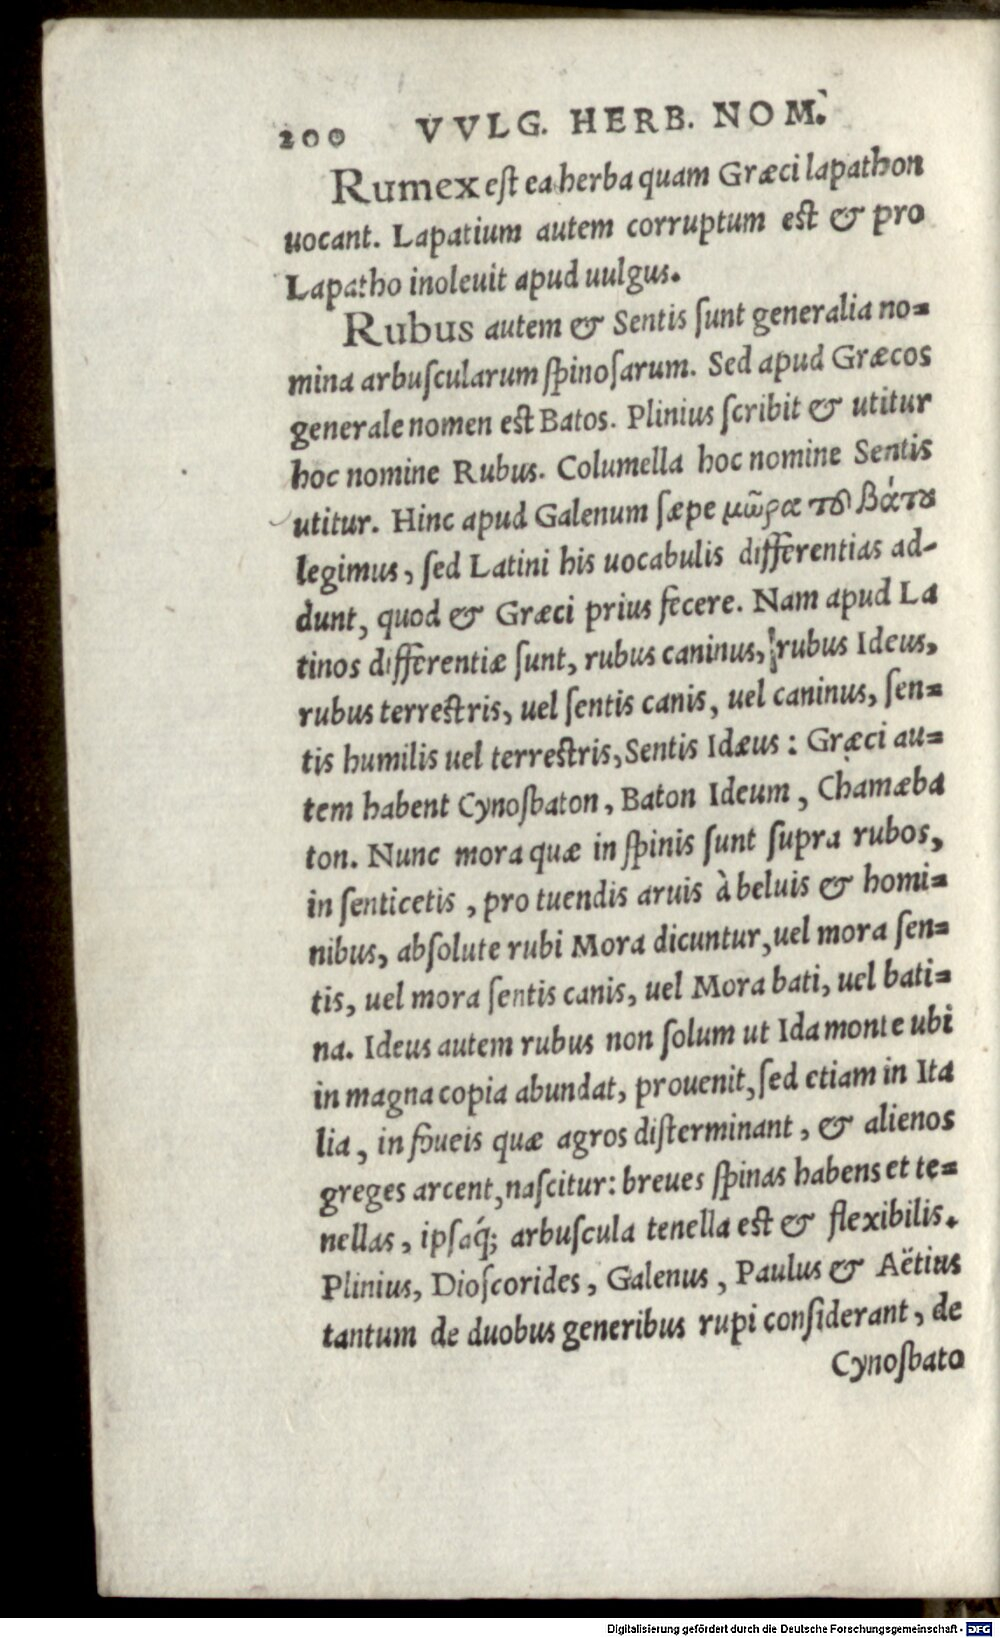 200 VVLG. HERB. NOM.
Rumex eſt ea herba quam Græci lapathon
uocant. Lapatium autem corruptum est & pro
Lapatho inoleuit apud uulgus.
Rubus autem & Sentis ſunt generalia no=
mina arbuſcularum ſpinoſarum. Sed apud Græcos
generale nomen est Batos. Plinius ſcribit & utitur
hoc nomine Rubus. Columella hoc nomine Sentis
utitur. Hinc apud Galenum ſæpe μῶρα τȣ͂ βάτȣ
legimus, ſed Latini his uocabulis differentias ad-
dunt, quod & Græci prius fecere. Nam apud La
tinos differentiæ ſunt, rubus caninus, rubus Ideus,
rubus terrestris, uel ſentis canis, uel caninus, ſen=
tis humilis uel terrestris, Sentis Idæus: Græci au=
tem habent Cynoſbaton, Baton Ideum, Chamæba
ton. Nunc mora quæ in ſpinis ſunt ſupra rubos,
in ſenticetis, pro tuendis aruis à beluis & homi=
nibus, abſolute rubi Mora dicuntur, uel mora ſen=
tis, uel mora ſentis canis, uel Mora bati, uel bati=
na. Ideus autem rubus non ſolum ut Ida monte ubi
in magna copia abundat, prouenit, ſed etiam in Ita
lia, in foueis quæ agros diſterminant, & alienos
greges arcent, naſcitur: breues ſpinas habens et te=
nellas, ipſaq́; arbuſcula tenella est & flexibilis.
Plinius, Dioſcorides, Galenus, Paulus & Aëtius
tantum de duobus generibus rupi conſiderant, de
Cynoſbato
Digitalisierung gefördert durch die Deutsche Forschungsgemeinschaft - DFG